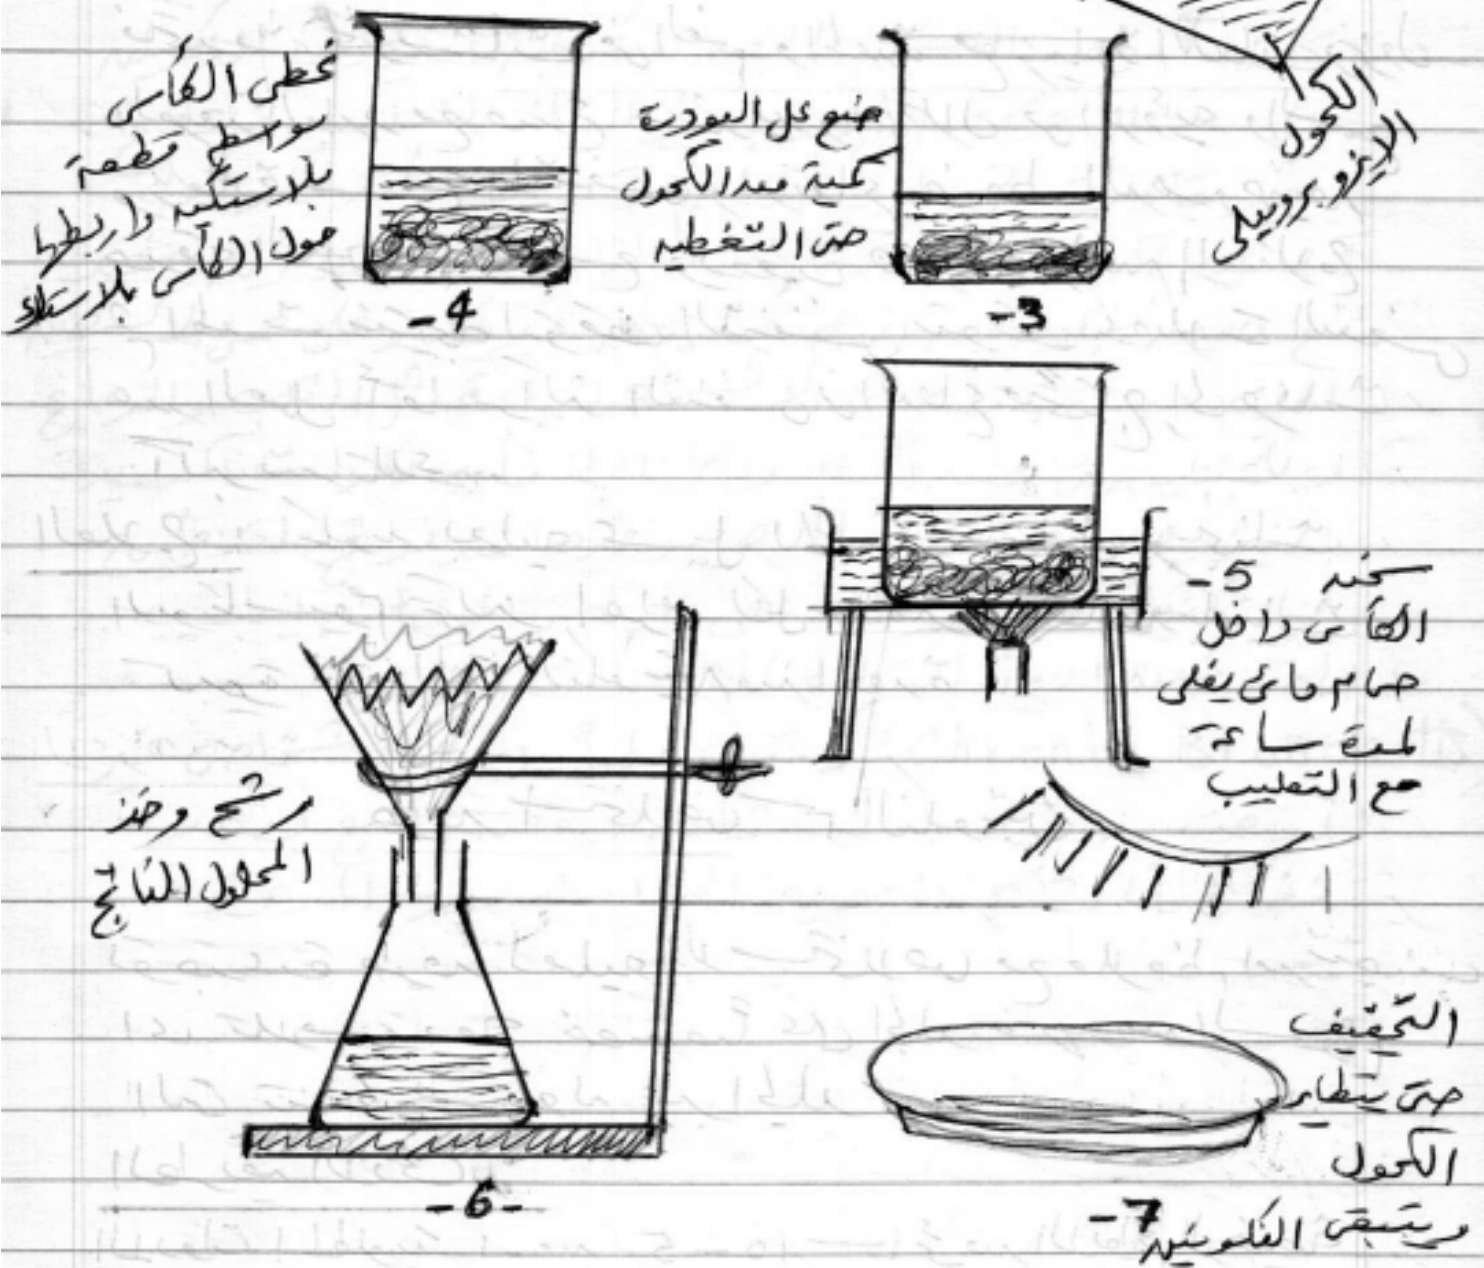 الكحول
الايزوبروبيلي
ضع على البودرة
كمية من الكحول
حتى التغطية
3-
غطي الكأس
بواسطة قطعة
بلاستيكية واربطها
حول الكأس بلاستك
4-
5- سخن
الكأس داخل
حمام مائي يغلي
لمدة ساعة
مع التقليب
رشح وخذ
المحلول الناتج
-6-
التجفيف
حتى يتطاير
الكحول
ويتبقى النكوتين
7-